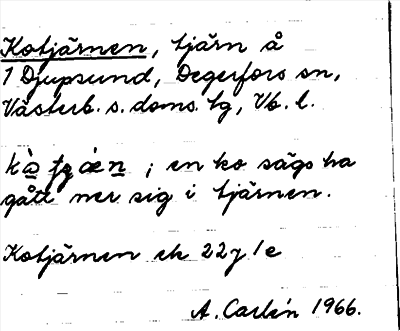 Kotjärnen, tjärn å
1 Djupsund, Degerfors sn,
Västerb. s. doms. tg, Vb. l.
en ko sägs ha
gått ner sig i tjärnen.
Kotjärnen ek 22 j 1 e
A. Carlén 1966.